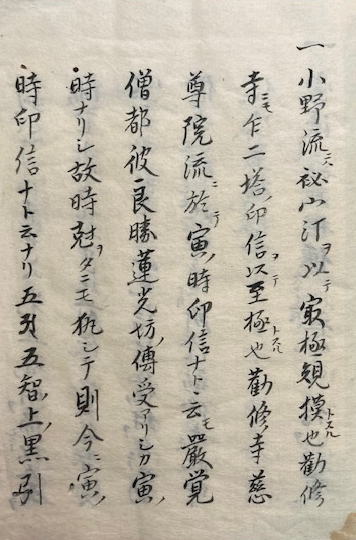 一小野流ニハ秘小汀ヲ以テ㝡極規摸トスル也勧修
寺ニモ乍二塔ノ印信ヲ以テ至極トスル也勧修寺慈
尊院流ニ於テ寅ノ時印信ナトヽ云モ嚴覚
僧都彼ノ良勝蓮光坊ノ傳受アリシカ寅ノ
時ナリシ故時尅ヲタニモ執シテ則今ニ寅ノ
時印信ナト云ナリ五引五智ノ上ノ黒引